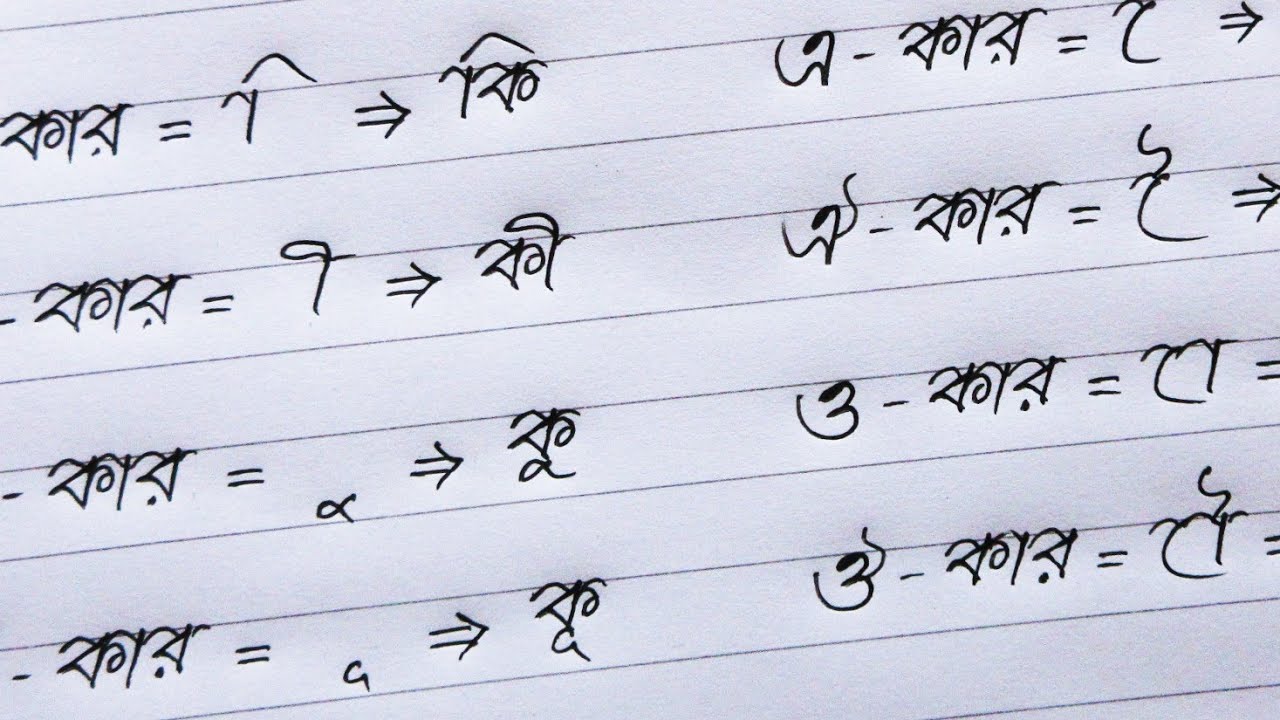 কার = ি ⇒ কি
- কার = ী ⇒ কী
- কার = ু ⇒ কু
- কার = ূ ⇒ কূ
এ - কার = ে ⇒
ঐ - কার = ৈ ⇒
ও - কার = ো =
ঔ - কার = ৌ =